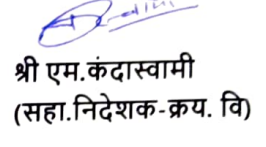 श्री एम.कंदास्वामी
(सहा.निदेशक-क्रय. वि)